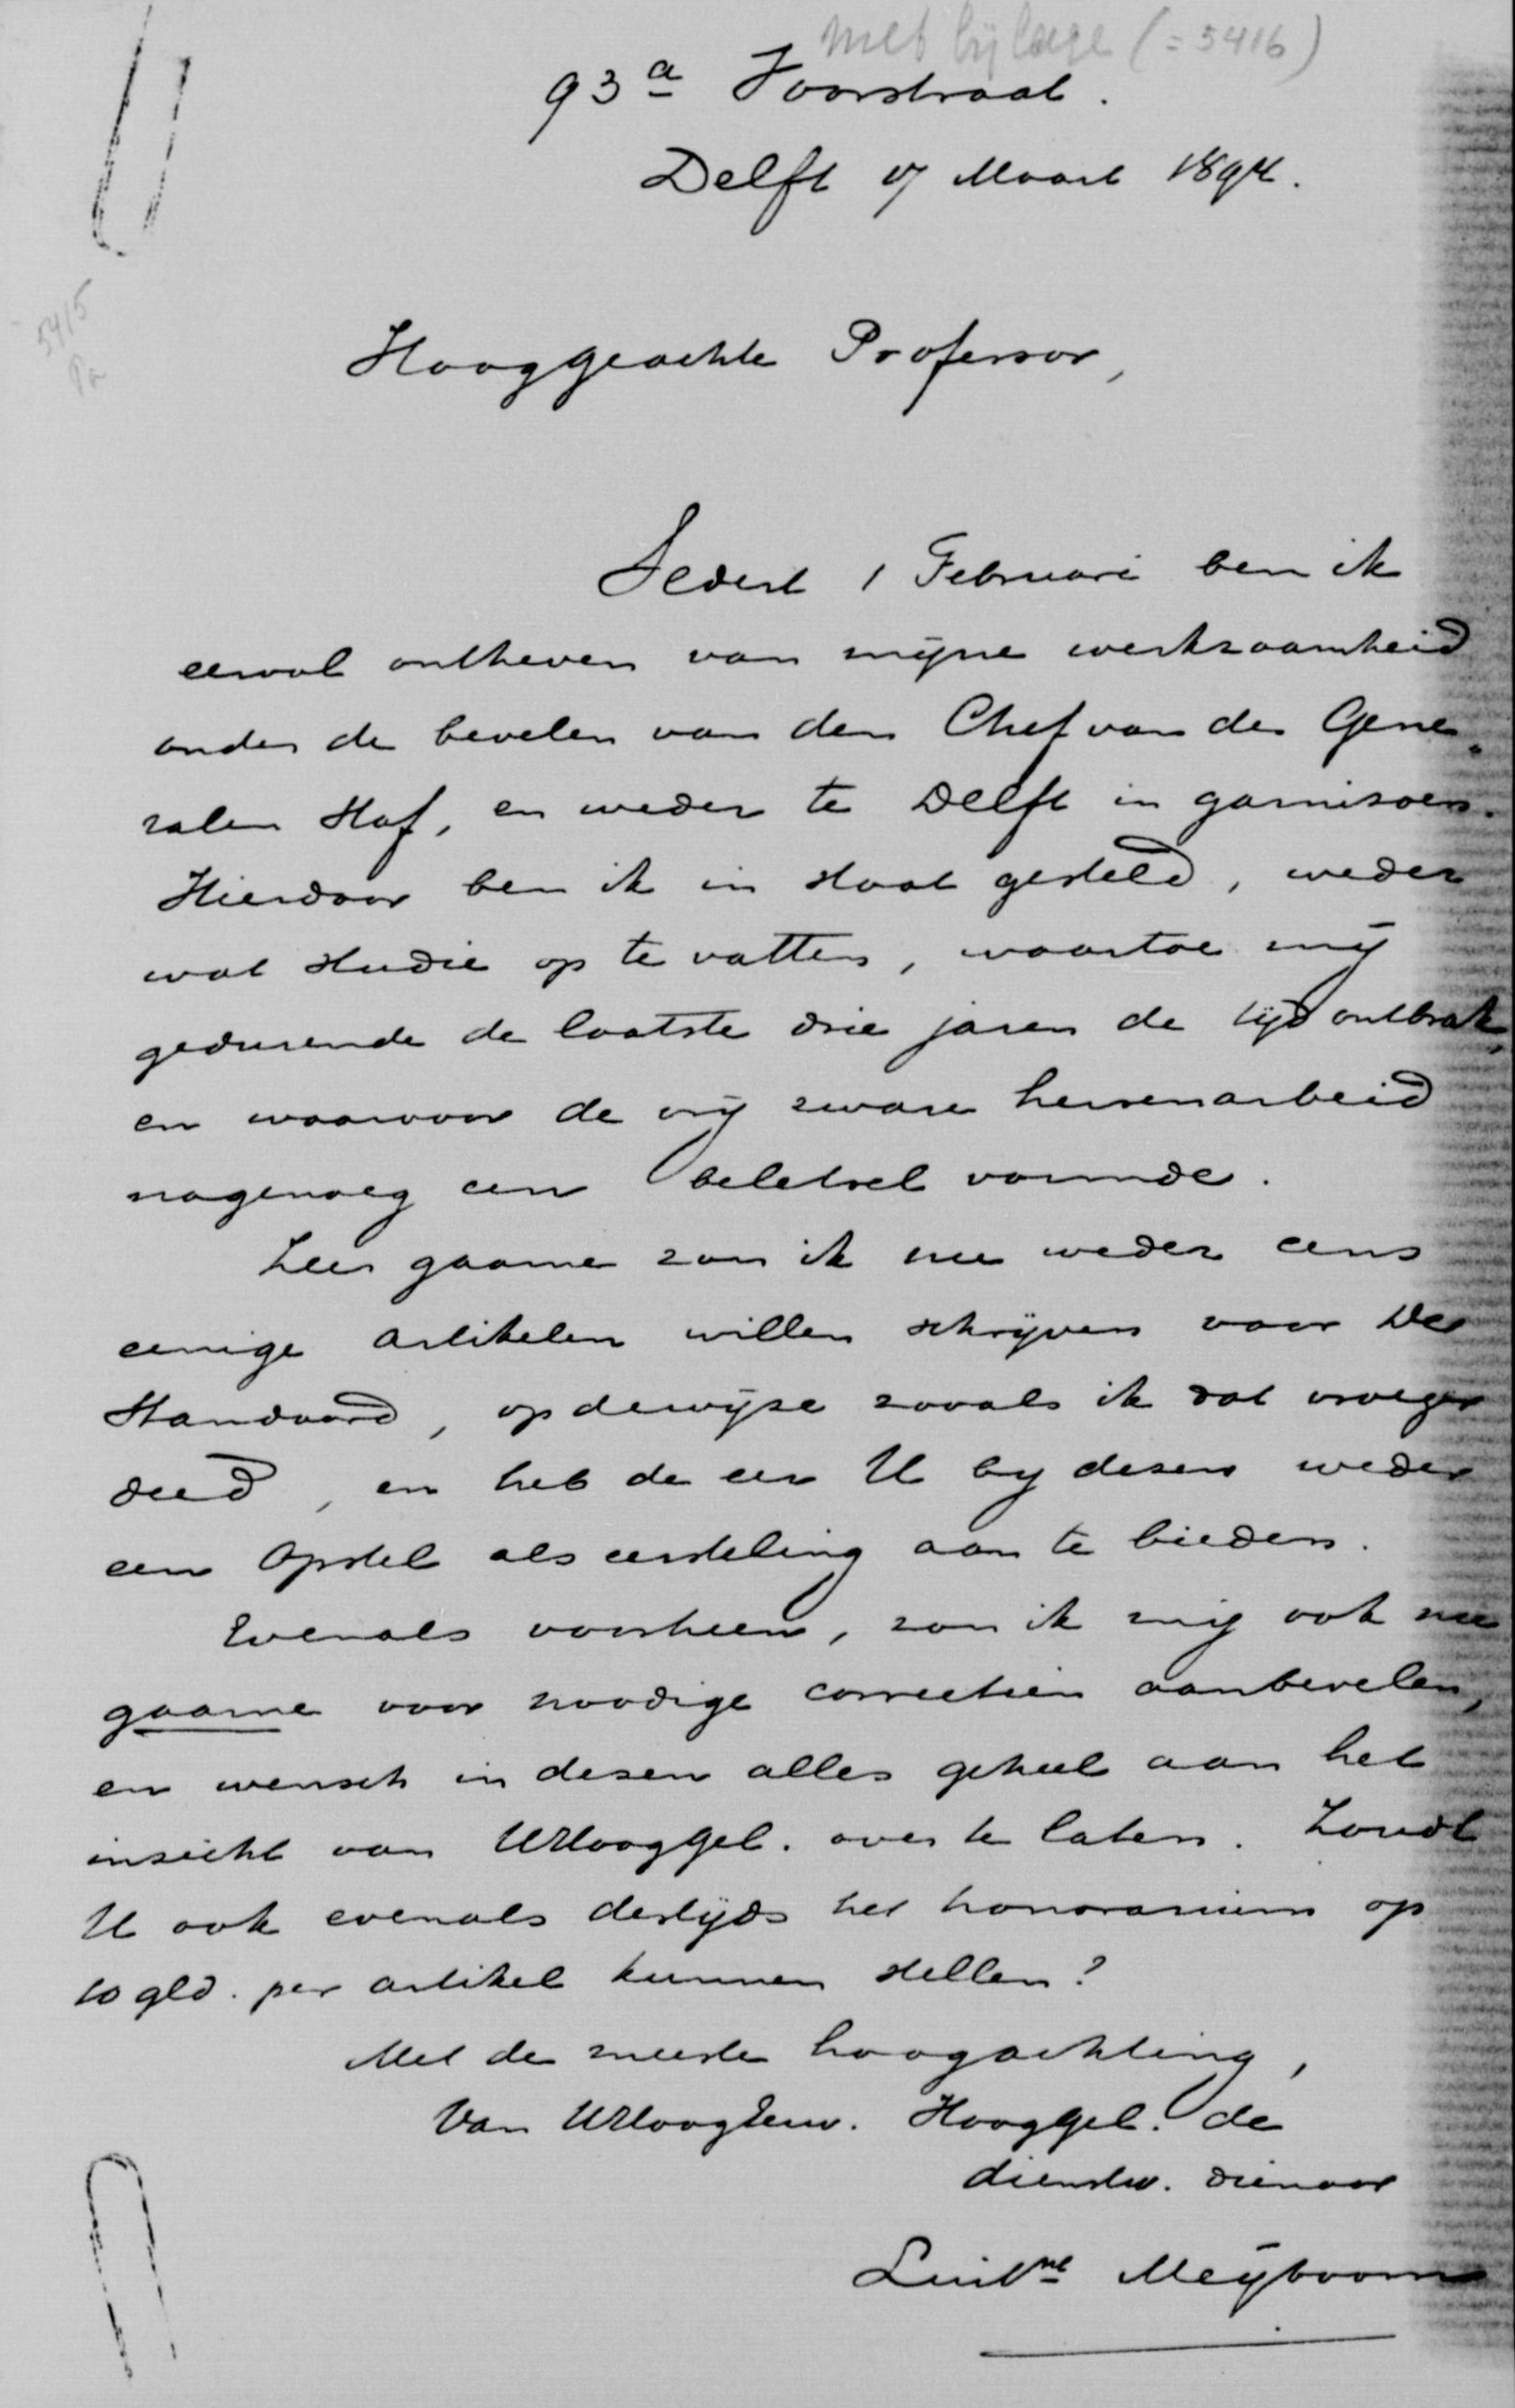 met bijlage (=5416)
93a Voorstraat.
Delft 17 Maart 1894.
5415
Hooggeachte Professor,
Sedert 1 Februari ben ik
eervol ontheven van mijne werkzaamheid
onder de bevelen van den Chef van den Gene„
ralen Staf, en weder te Delft in garnizoen.
Hierdoor ben ik in staat gesteld, weder
wat studie op te vatten, waartoe mij
gedurende de laatste drie jaren de tijd ontbrak,
en waarvoor de vrij zware hersenarbeid
nagenoeg een beletsel vormde.
Zeer gaarne zou ik nu weder eens
eenige artikelen willen schrijven voor De
Standaard, op de wijze zooals ik dat vroeger
deed, en heb de eer U by dezen weder
een opstel als eersteling aan te bieden.
Evenals voorheen, zou ik mij ook nu
gaarne voor noodige correctiën aanbevelen,
en wensch in dezen alles geheel aan het
inzicht van UHooggel. over te laten. Zoudt
U ook evenals destijds het honorarium op
10 gld. per artikel kunnen stellen?
Met de meeste hoogachting,
Van UHoogEerw. Hooggel. de
dienstw. dienaar
Luitnt Meyboom